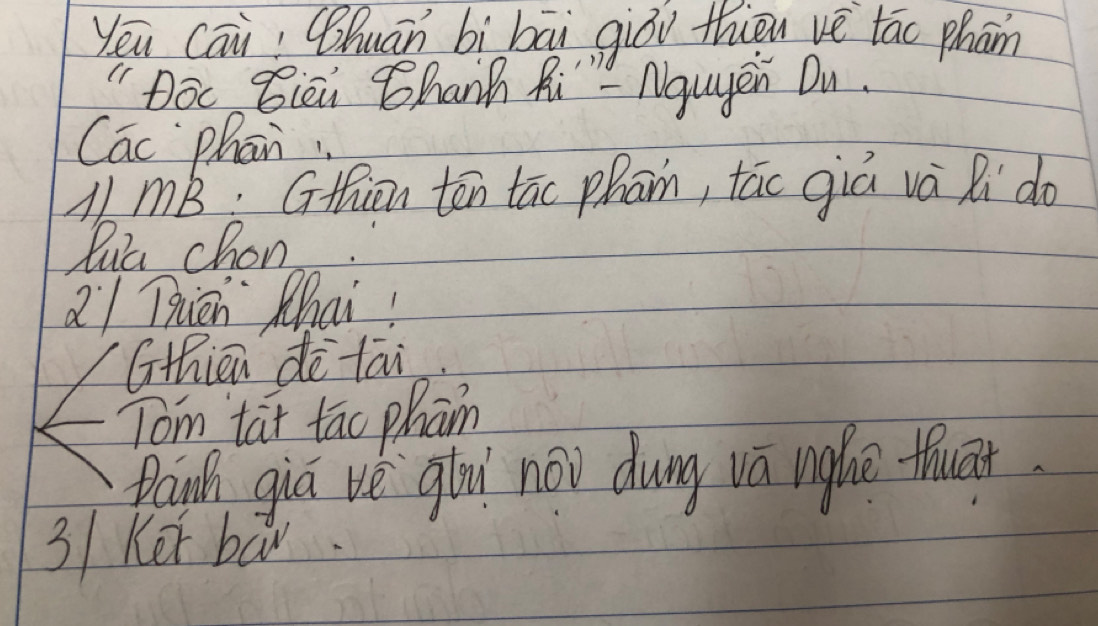 Yêu cầu: Chuẩn bị bài giới thiệu về tác phẩm
"Độc Tiểu Thanh kí" - Nguyễn Du.
Các phần:
1) MB: Gthiệu tên tác phẩm, tác giả và lí do
lựa chọn.
2) Triển khai:
Gthiệu đề tài.
Tóm tắt tác phẩm
Đánh giá về gtrị nội dung và nghệ thuật.
3) Kết bài.